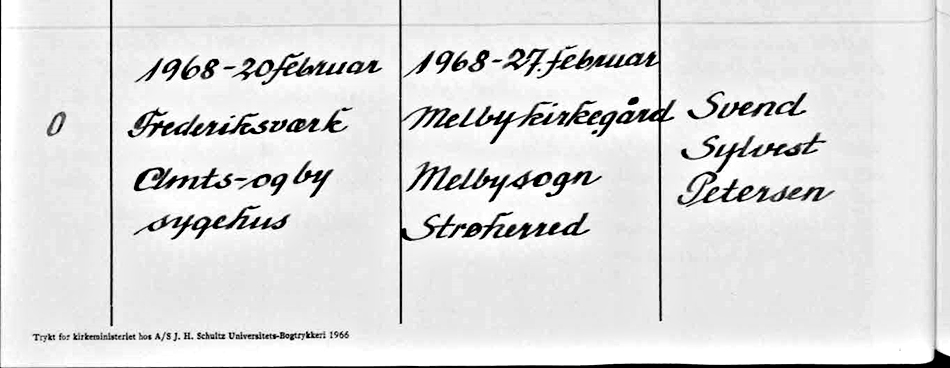 0
1968-20 februar
Frederiksværk
Amts-og by
sygehus
1968-27. februar
Melby kirkegård
Melby sogn
Strø herred
Svend
Sylvest
Petersen
Trykt for kirkeministeriet hos A/S J. H. Schultz Universitets-Bogtrykkeri 1966